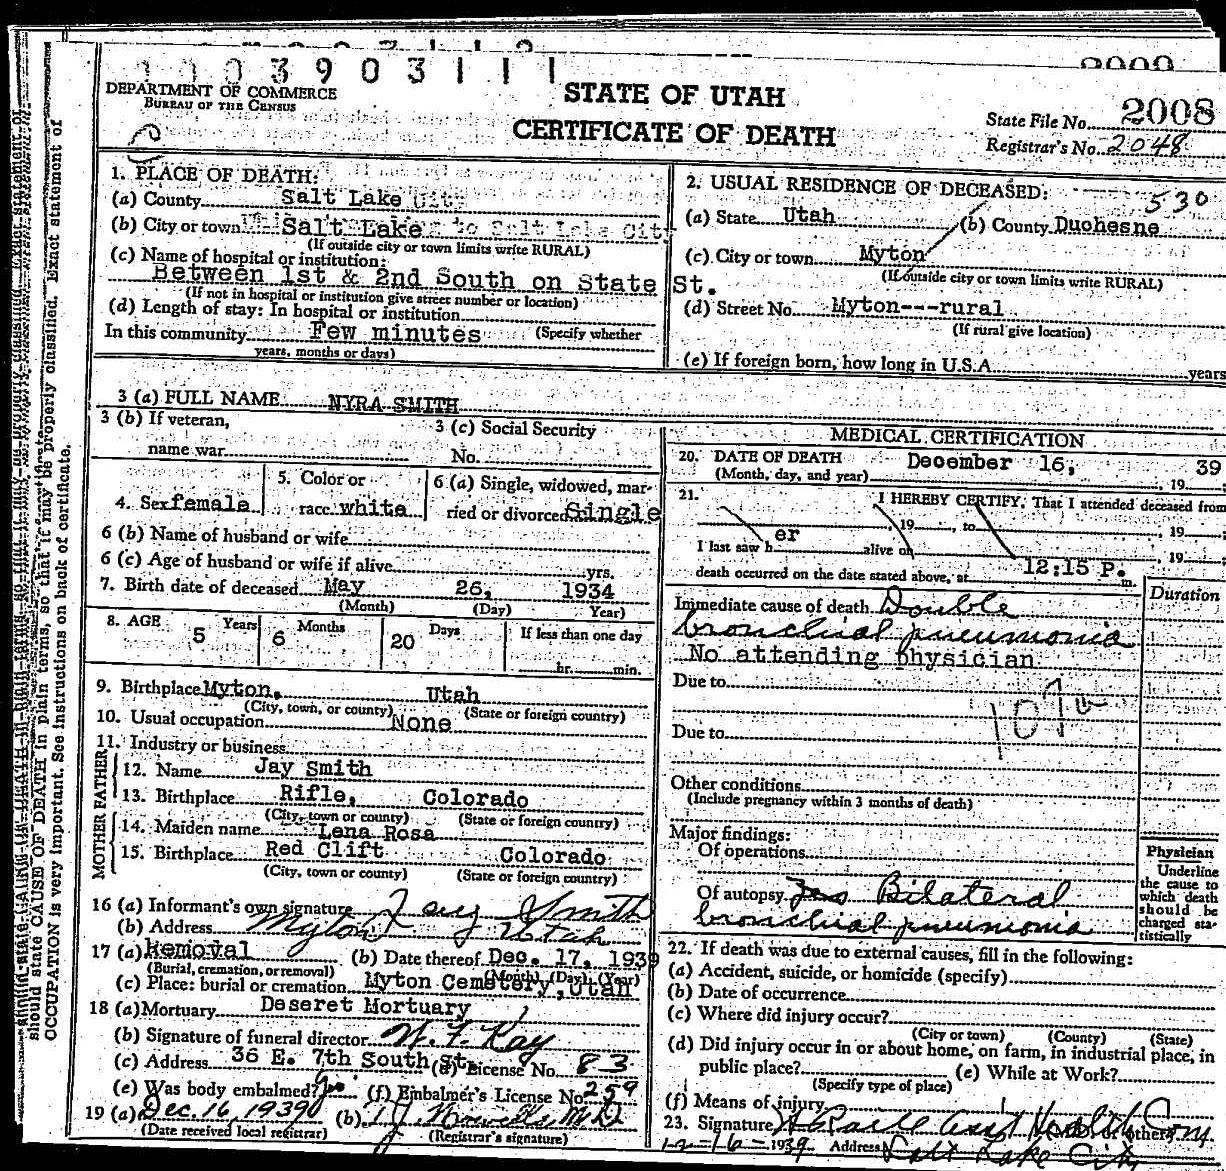 0003903111
DEPARTMENT OF COMMERCE
BUREAU OF THE CENSUS
STATE OF UTAH
CERTIFICATE OF DEATH
State File No. 2008
Registrar's No. 2048
1. PLACE OF DEATH:
(a) County Salt Lake City
(b) City or town Salt Lake to Salt Lake City
(If outside city or town limits write RURAL)
(c) Name of hospital or institution:
Between 1st & 2nd South on State St.
(If not in hospital or institution give street number or location)
(d) Length of stay: In hospital or institution
In this community Few minutes (Specify whether
years, months or days)
2. USUAL RESIDENCE OF DECEASED: 530
(a) State Utah (b) County Duchesne
(c) City or town Myton
(If outside city or town limits write RURAL)
(d) Street No. Myton---rural
(If rural give location)
(e) If foreign born, how long in U.S.A. years
3 (a) FULL NAME NYRA SMITH
3 (b) If veteran,
name war
3 (c) Social Security
No.
4. Sex female
5. Color or
race white
6 (a) Single, widowed, mar-
ried or divorced Single
6 (b) Name of husband or wife
6 (c) Age of husband or wife if alive yrs.
7. Birth date of deceased May 26, 1934
(Month) (Day) Year)
8. AGE 5 Years 6 Months 20 Days If less than one day
hr. min.
9. Birthplace Myton, Utah
(City, town, or county) (State or foreign country)
10. Usual occupation None
11. Industry or business
FATHER
12. Name Jay Smith
13. Birthplace Rifle, Colorado
(City, town or county) (State or foreign country)
MOTHER
14. Maiden name Lena Rosa
15. Birthplace Red Clift Colorado
(City, town or county) (State or foreign country)
16 (a) Informant's own signature Jay Smith
(b) Address Myton Utah
17 (a) Removal (b) Date thereof Dec. 17, 1939
(Burial, cremation, or removal) (Month) (Day) (Year)
(c) Place: burial or cremation Myton Cemetery, Utah
18 (a) Mortuary Deseret Mortuary
(b) Signature of funeral director W. F. Kay
(c) Address 36 E. 7th South St. (d) License No. 83
(e) Was body embalmed? yes (f) Embalmer's License No. 259
19 (a) Dec. 16, 1939 (b) M.D.
(Date received local registrar) (Registrar's signature)
MEDICAL CERTIFICATION
20. DATE OF DEATH December 16, 39
(Month, day, and year) 19
21. I HEREBY CERTIFY, That I attended deceased from
, 19 , to , 19 ;
I last saw h er alive on , 19 ;
death occurred on the date stated above, at 12:15 P. m.
Duration
Immediate cause of death Double
bronchial pneumonia
No attending physician
Due to
107a
Due to
Other conditions
(Include pregnancy within 3 months of death)
Major findings:
Of operations
Of autopsy yes Bilateral
bronchial pneumonia
Physician
Underline
the cause to
which death
should be
charged sta-
tistically
22. If death was due to external causes, fill in the following:
(a) Accident, suicide, or homicide (specify)
(b) Date of occurrence
(c) Where did injury occur?
(City or town) (County) (State)
(d) Did injury occur in or about home, on farm, in industrial place, in
public place? (e) While at Work?
(Specify type of place)
(f) Means of injury
23. Signature Asst Health Com.
12-16-1939 Address Salt Lake City
should state CAUSE OF DEATH in plain terms, so that it may be properly classified. Exact statement of
OCCUPATION is very important. See instructions on back of certificate.